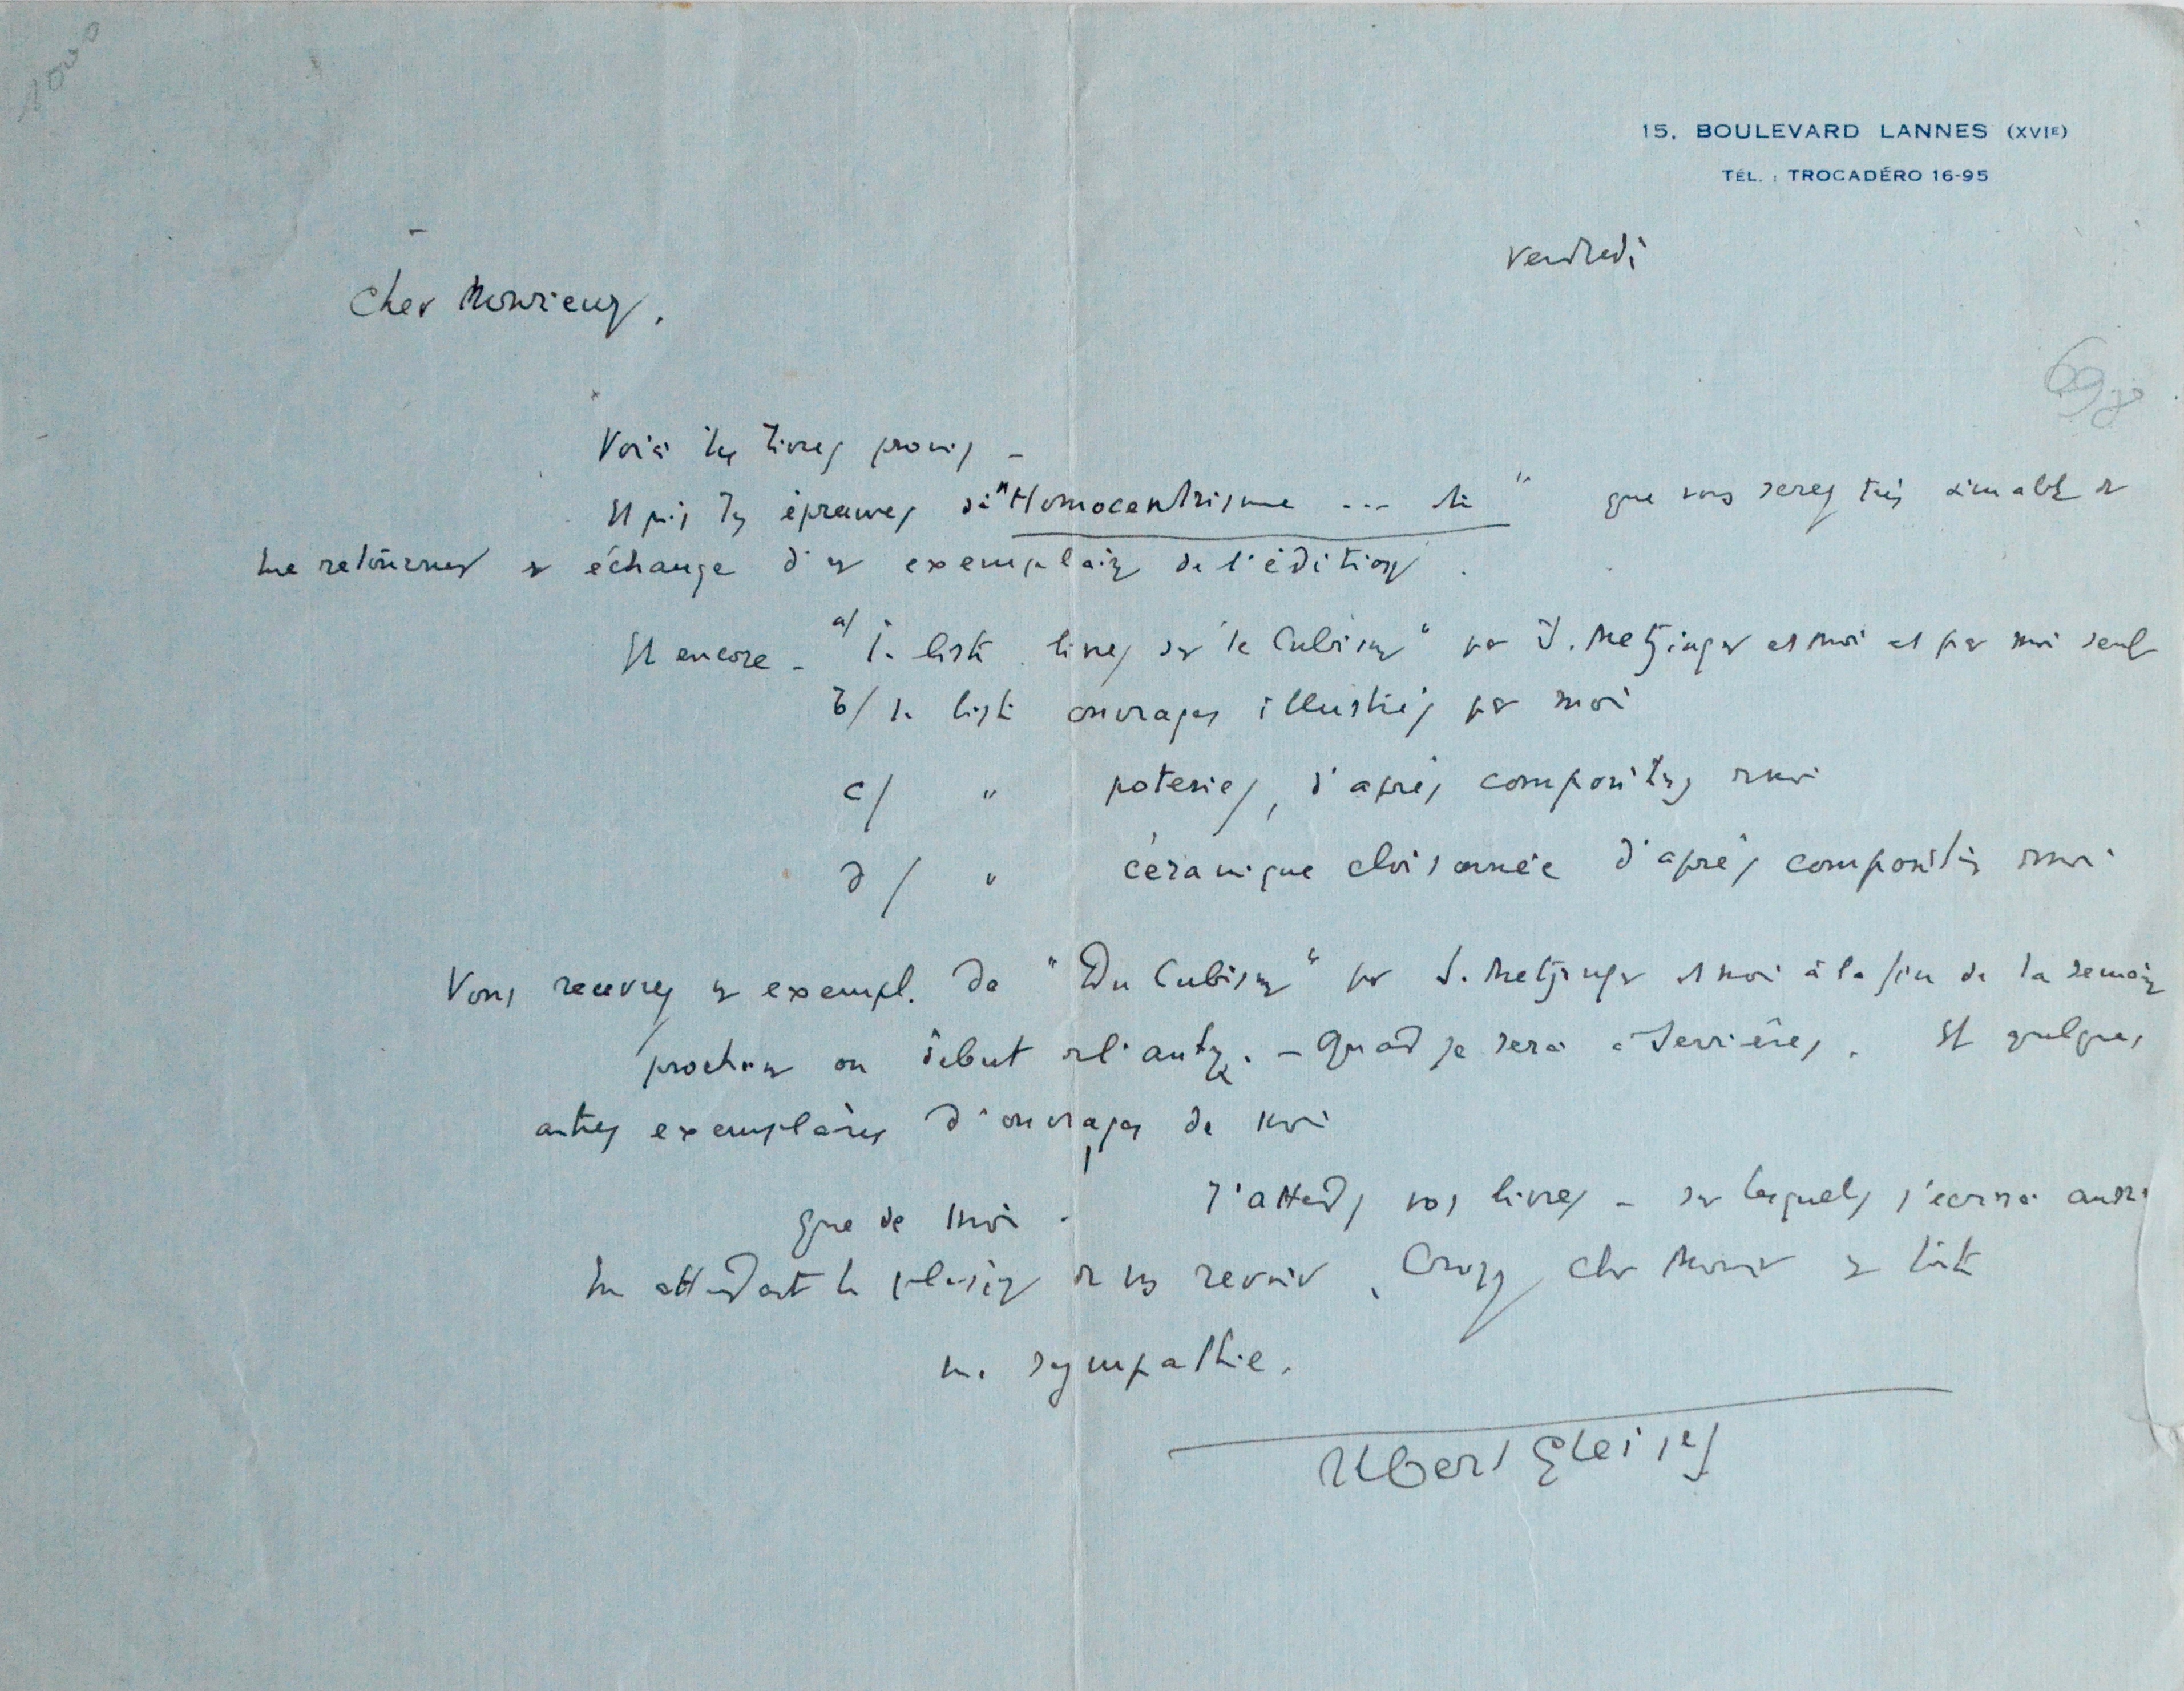 15, BOULEVARD LANNES (XVIE)
TÉL. : TROCADÉRO 16-95
Vendredi
Cher Monsieur,
Voici les livres promis –
Et puis les épreuves de "Homocentrisme ... etc " que vous serez très aimable de
me retourner en échange d'un exemplaire de l'édition.
Et encore – a/ la liste livres sur "le Cubisme" par J. Metzinger et moi et par moi seul
b/ la liste ouvrages illustrés par moi
c/ " poteries, d'après compositions de moi
d/ " céramique cloisonnée d'après compositions de moi
Vous recevrez un exempl. de "Du Cubisme" par J. Metzinger et moi à la fin de la semaine
prochaine ou début de l'autre. – Quand je serai à Serrières. Et quelques
autres exemplaires d'ouvrages de moi
que de moi. J'attends vos livres – sur lesquels j'écrirai aussi
En attendant le plaisir de vous revoir, Croyez cher Monsieur en toute
ma sympathie.
Albert Gleizes